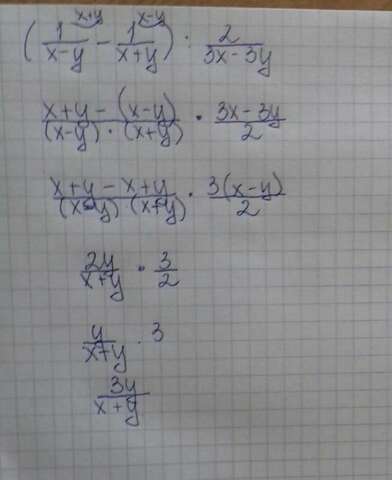 (1/(x-y) ^(x+y) - 1/(x+y) ^(x-y)) : 2/(3x-3y)
(x+y-(x-y))/((x-y)·(x+y)) · (3x-3y)/2
(x+y-x+y)/((x-y)(x+y)) · 3(x-y)/2
2y/(x+y) · 3/2
y/(x+y) · 3
3y/(x+y)